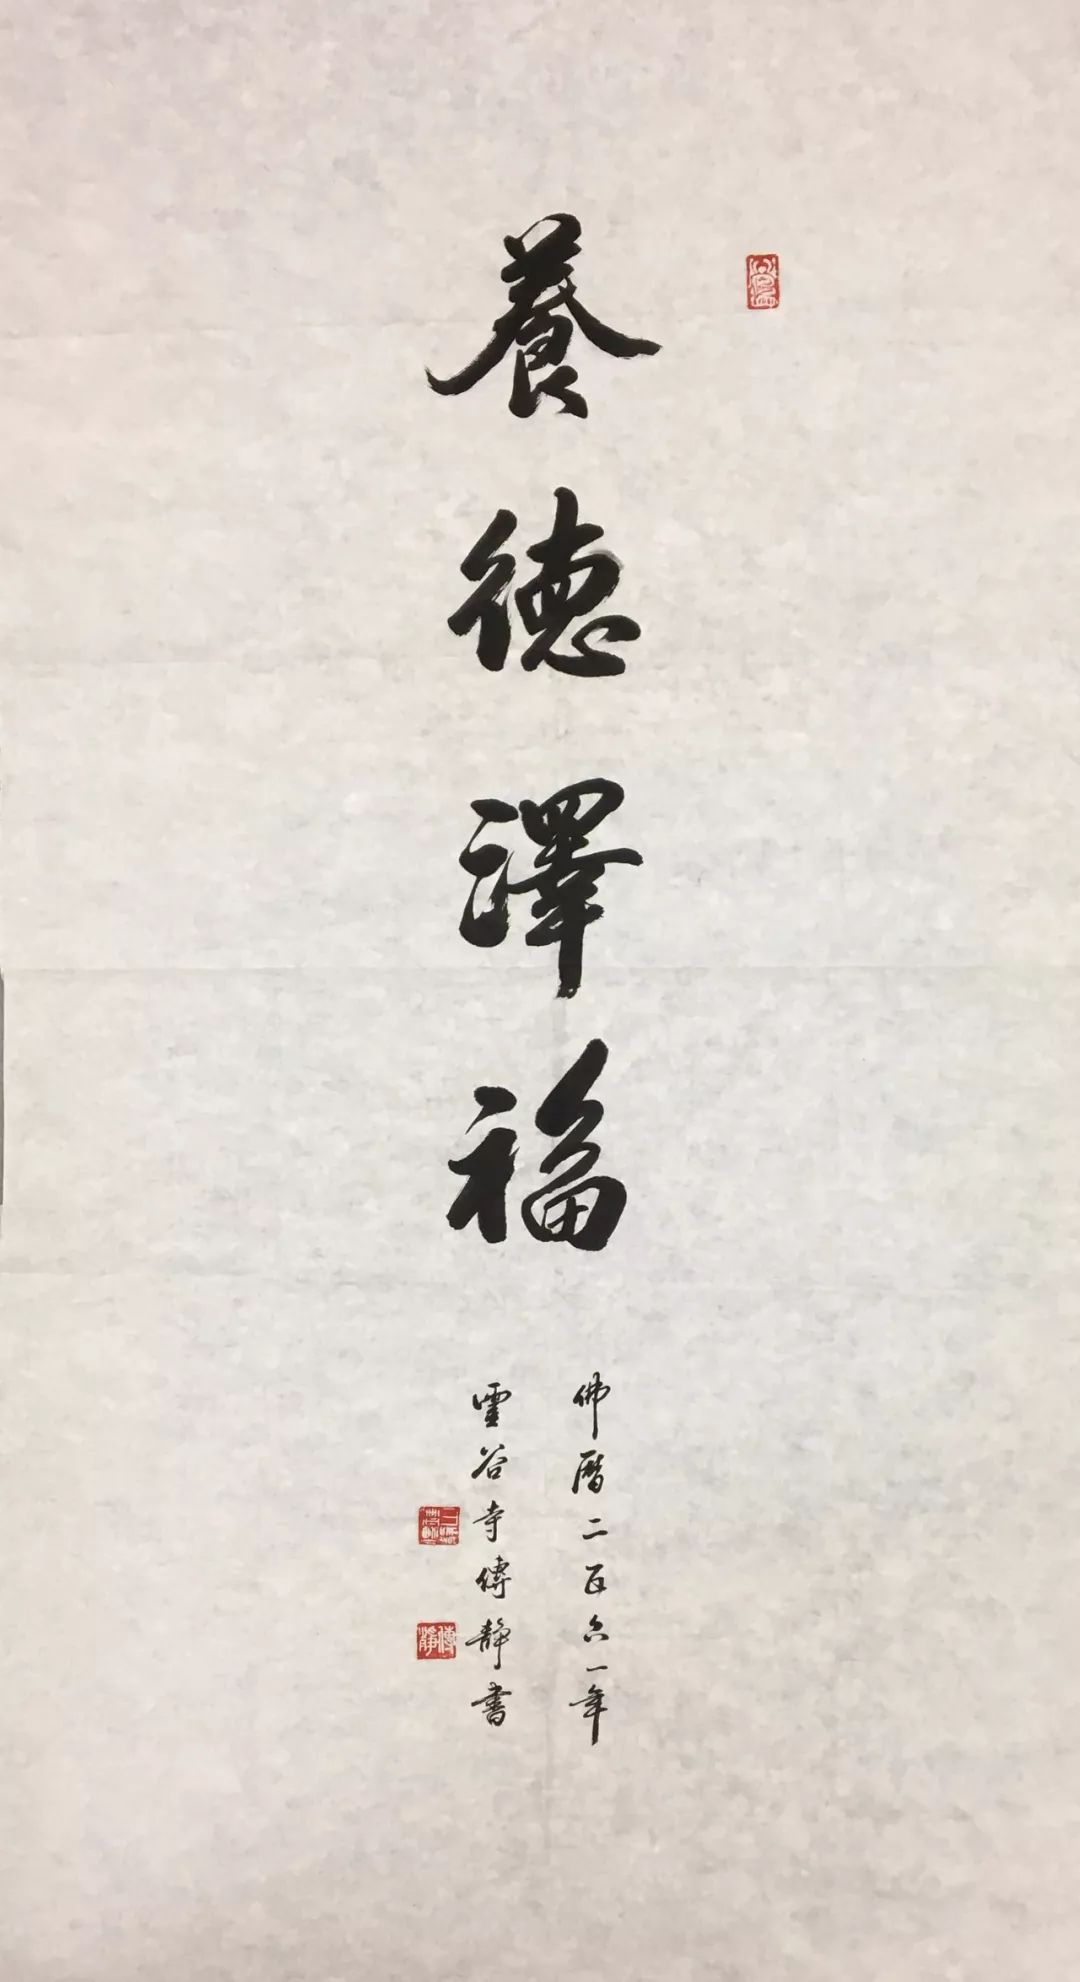 養德澤福
佛曆二五六一年
靈谷寺傳靜書
傳靜